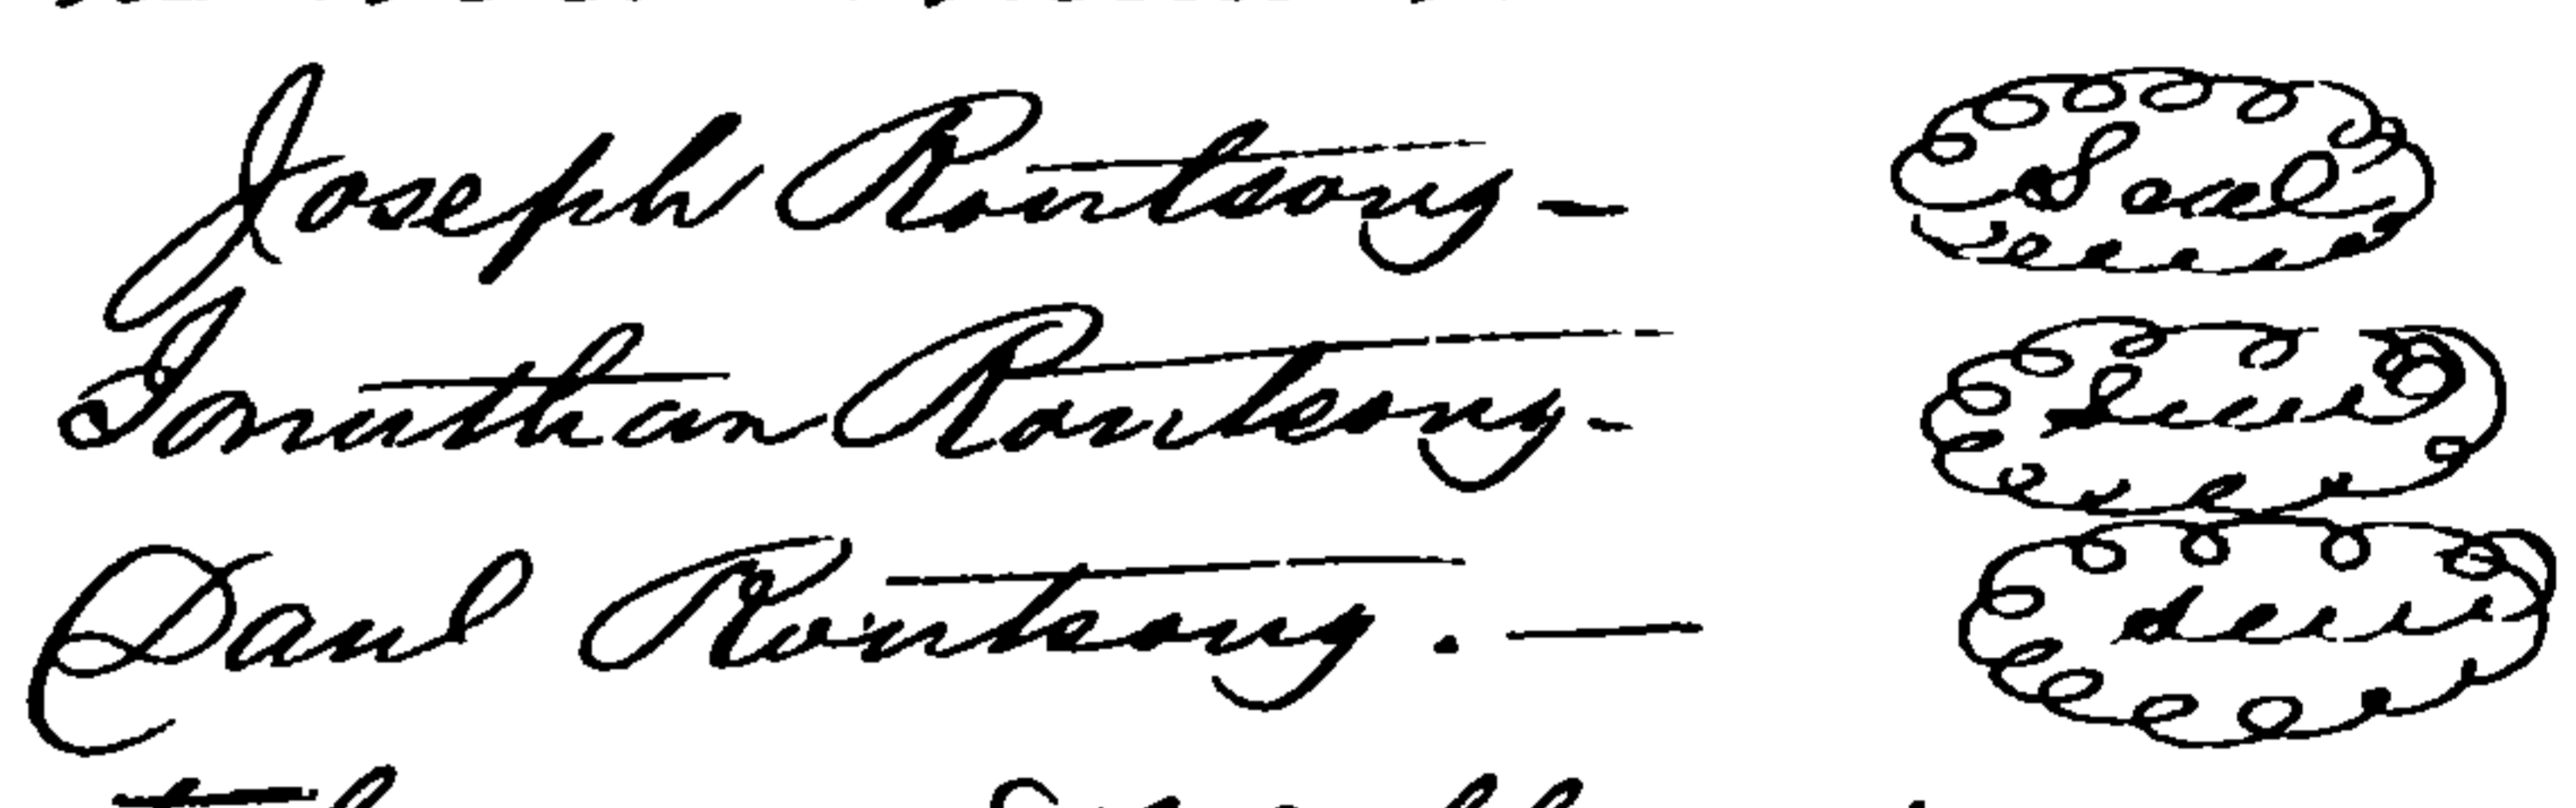 Joseph Rontsong - Seal
Jonathan Rontsong - Seal
Danl Rontsong. - Seal